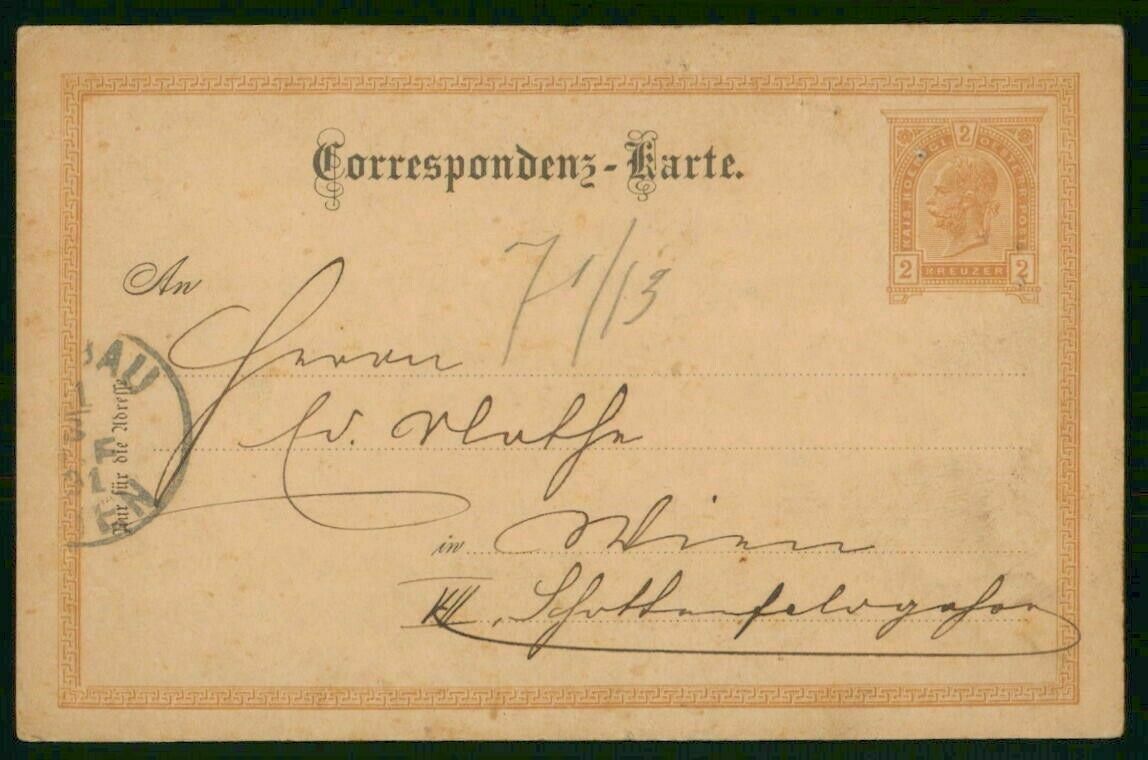 Correspondenz-Karte.
KAIS KOENIGL 2 OESTERR POST
2 KREUZER 2
71/13
An
Herrn
Ed.
in Wien
VII, Schottenfeldgasse
Nur für die Adresse